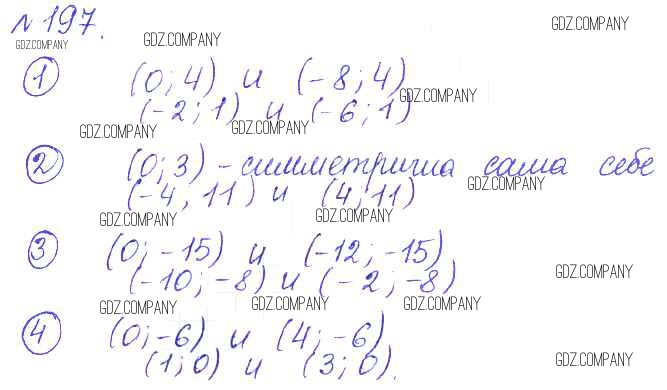 № 197.
GDZ.COMPANY
GDZ.COMPANY GDZ.COMPANY
1 (0; 4) и (-8; 4)
GDZ.COMPANY
(-2; 1) и (-6; 1)
GDZ.COMPANY GDZ.COMPANY
2 (0; 3) - симметрична сама себе
GDZ.COMPANY
(-4, 11) и (4; 11)
GDZ.COMPANY GDZ.COMPANY
3 (0; -15) и (-12; -15)
(-10; -8) и (-2; -8)
GDZ.COMPANY
GDZ.COMPANY GDZ.COMPANY GDZ.COMPANY
4 (0; -6) и (4; -6)
(1; 0) и (3; 0).
GDZ.COMPANY